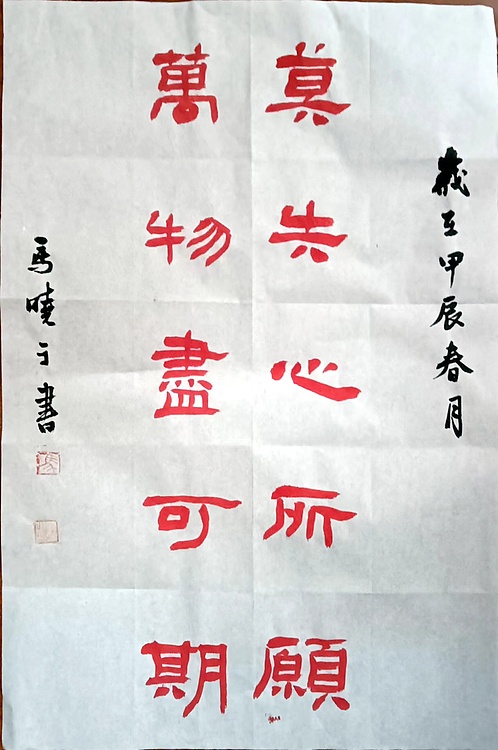 歲在甲辰春月
莫失心所願
萬物盡可期
馬曉于書